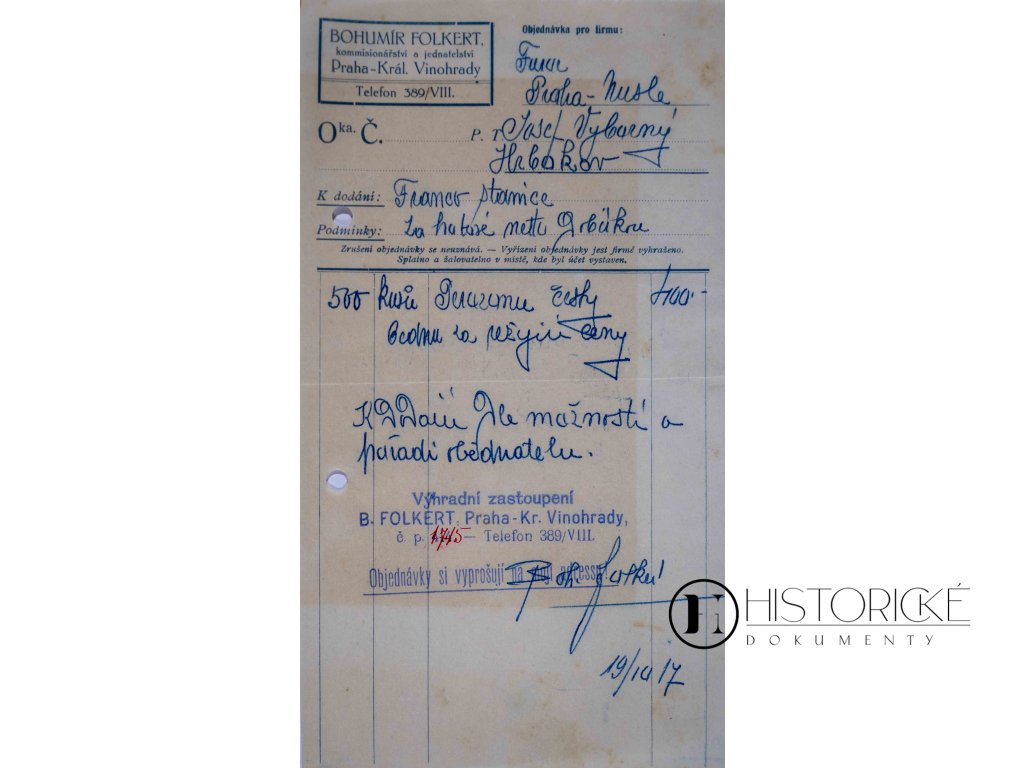 BOHUMÍR FOLKERT,
kommisionářství a jednatelství
Praha-Král. Vinohrady
Telefon 389/VIII.
Objednávka pro firmu:
Praha-Nusle
Oka. Č.
P. T. Josef Výborný
Hrbokov
K dodání: Franco stanice
Podmínky: za hotové netto
Zrušení objednávky se neuznává. — Vyřízení objednávky jest firmě vyhraženo.
Splatno a žalovatelno v místě, kde byl účet vystaven.
500 kusů česky 400.-
bednu za režijní ceny
K Dodání Dle možností a
pořadí objednatelu.
Výhradní zastoupení
B. FOLKERT, Praha-Kr. Vinohrady,
č. p. 1715 — Telefon 389/VIII.
Objednávky si vyprošuji na moji adressu!
19/10 17
HISTORICKÉ
DOKUMENTY